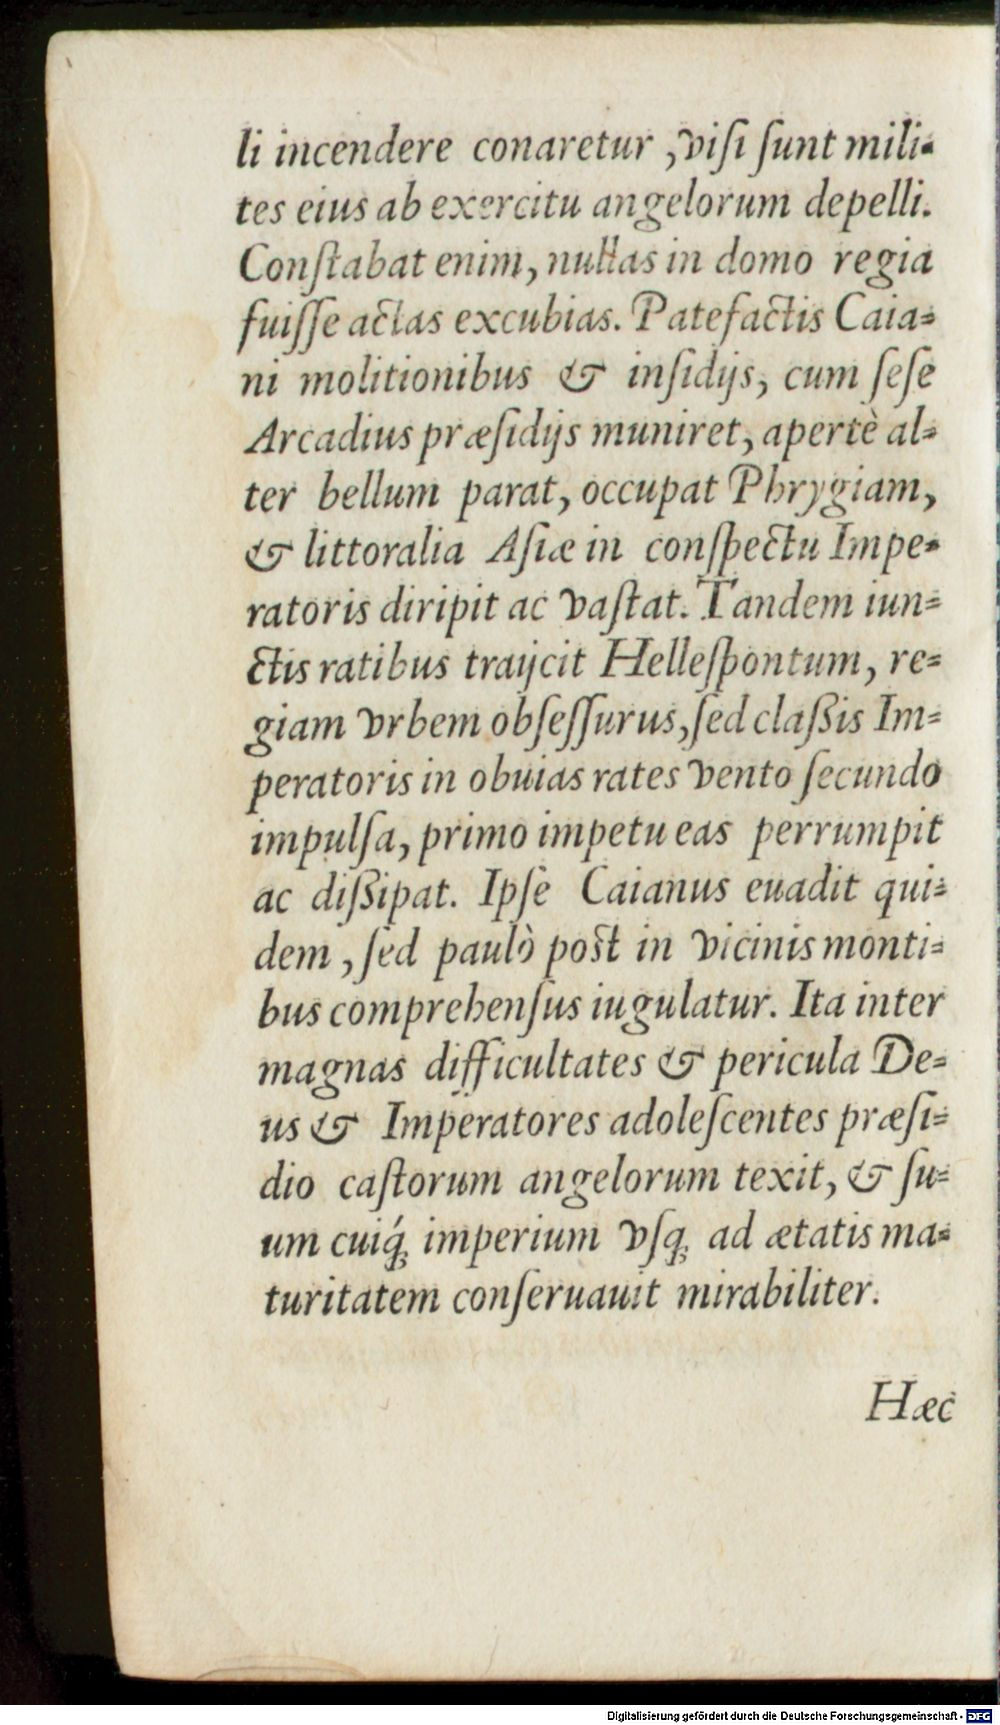 li incendere conaretur, viſi ſunt mili-
tes eius ab exercitu angelorum depelli.
Conſtabat enim, nullas in domo regia
fuiſſe actas excubias. Patefactis Caia=
ni molitionibus & inſidijs, cum ſeſe
Arcadius præſidijs muniret, apertè al=
ter bellum parat, occupat Phrygiam,
& littoralia Aſiæ in conſpectu Impe=
ratoris diripit ac vaſtat. Tandem iun=
ctis ratibus traijcit Helleſpontum, re=
giam vrbem obſeſſurus, ſed claßis Im=
peratoris in obuias rates vento ſecundo
impulſa, primo impetu eas perrumpit
ac dißipat. Ipſe Caianus euadit qui=
dem, ſed paulò poſt in vicinis monti=
bus comprehenſus iugulatur. Ita inter
magnas difficultates & pericula De=
us & Imperatores adoleſcentes præſi=
dio caſtorum angelorum texit, & ſu=
um cuiq́; imperium vſq; ad ætatis ma=
turitatem conſeruauit mirabiliter.
Hæc
Digitalisierung gefördert durch die Deutsche Forschungsgemeinschaft - DFG